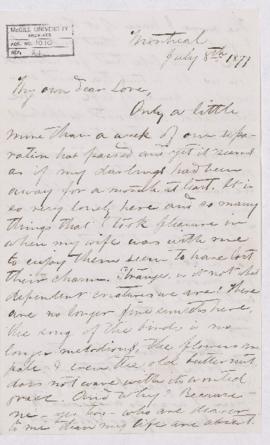 McGILL UNIVERSITY
ARCHIVES
ACC. NO. 1010
REF.
Montreal
July 8th 1877
My own dear Love,
Only a little
more than a week of our sepa-
ration has passed and yet it seems
as if my darlings had been
away for a month at least. It is
so very lonely here and so many
things that I took pleasure in
when my wife was with me
to enjoy them seem to have lost
their charm. Strange, is it not what
dependent creatures we are! There
are no longer fine sunsets here,
the song of the birds is no
longer melodious, the flowers are
pale & even the old butternut
does not wave with its wonted
grace. And why? Because
me - yes two - who are dearer
to me than my life are absent